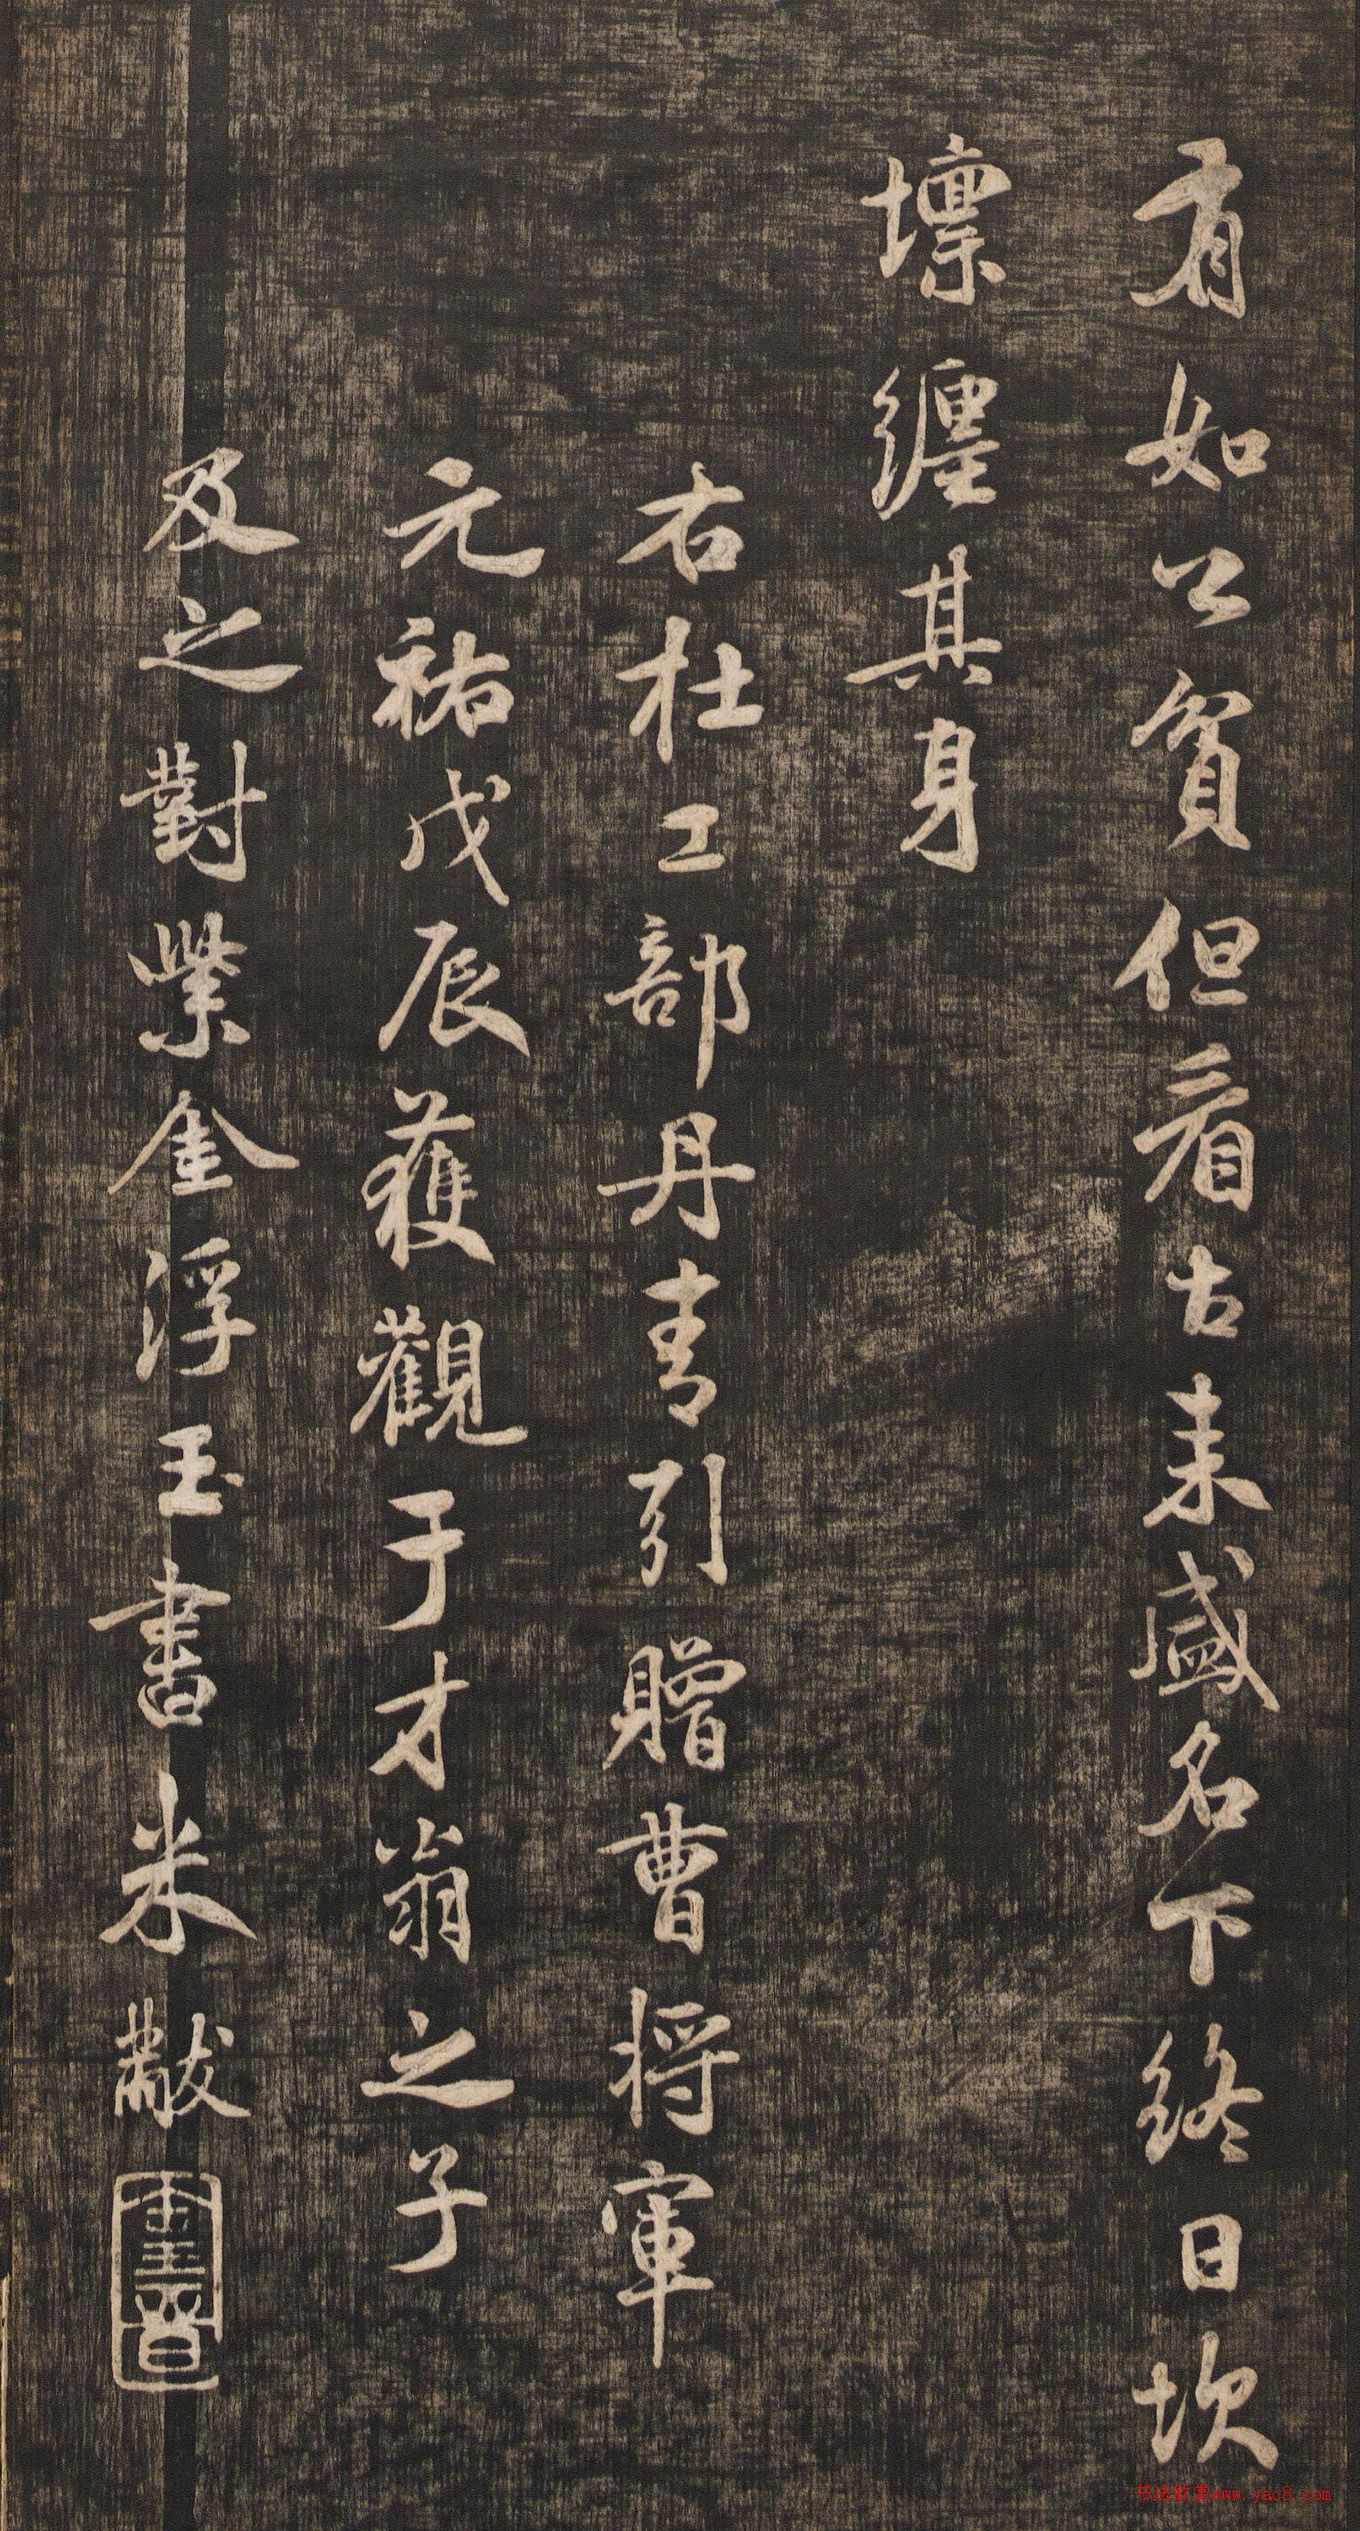 有如公貧但看古来盛名下終日坎
壈纏其身
右杜工部丹青引贈曹将軍
元祐戊辰獲觀于才翁之子
及之對紫金浮玉書米黻
书法欣赏www.yac8.com